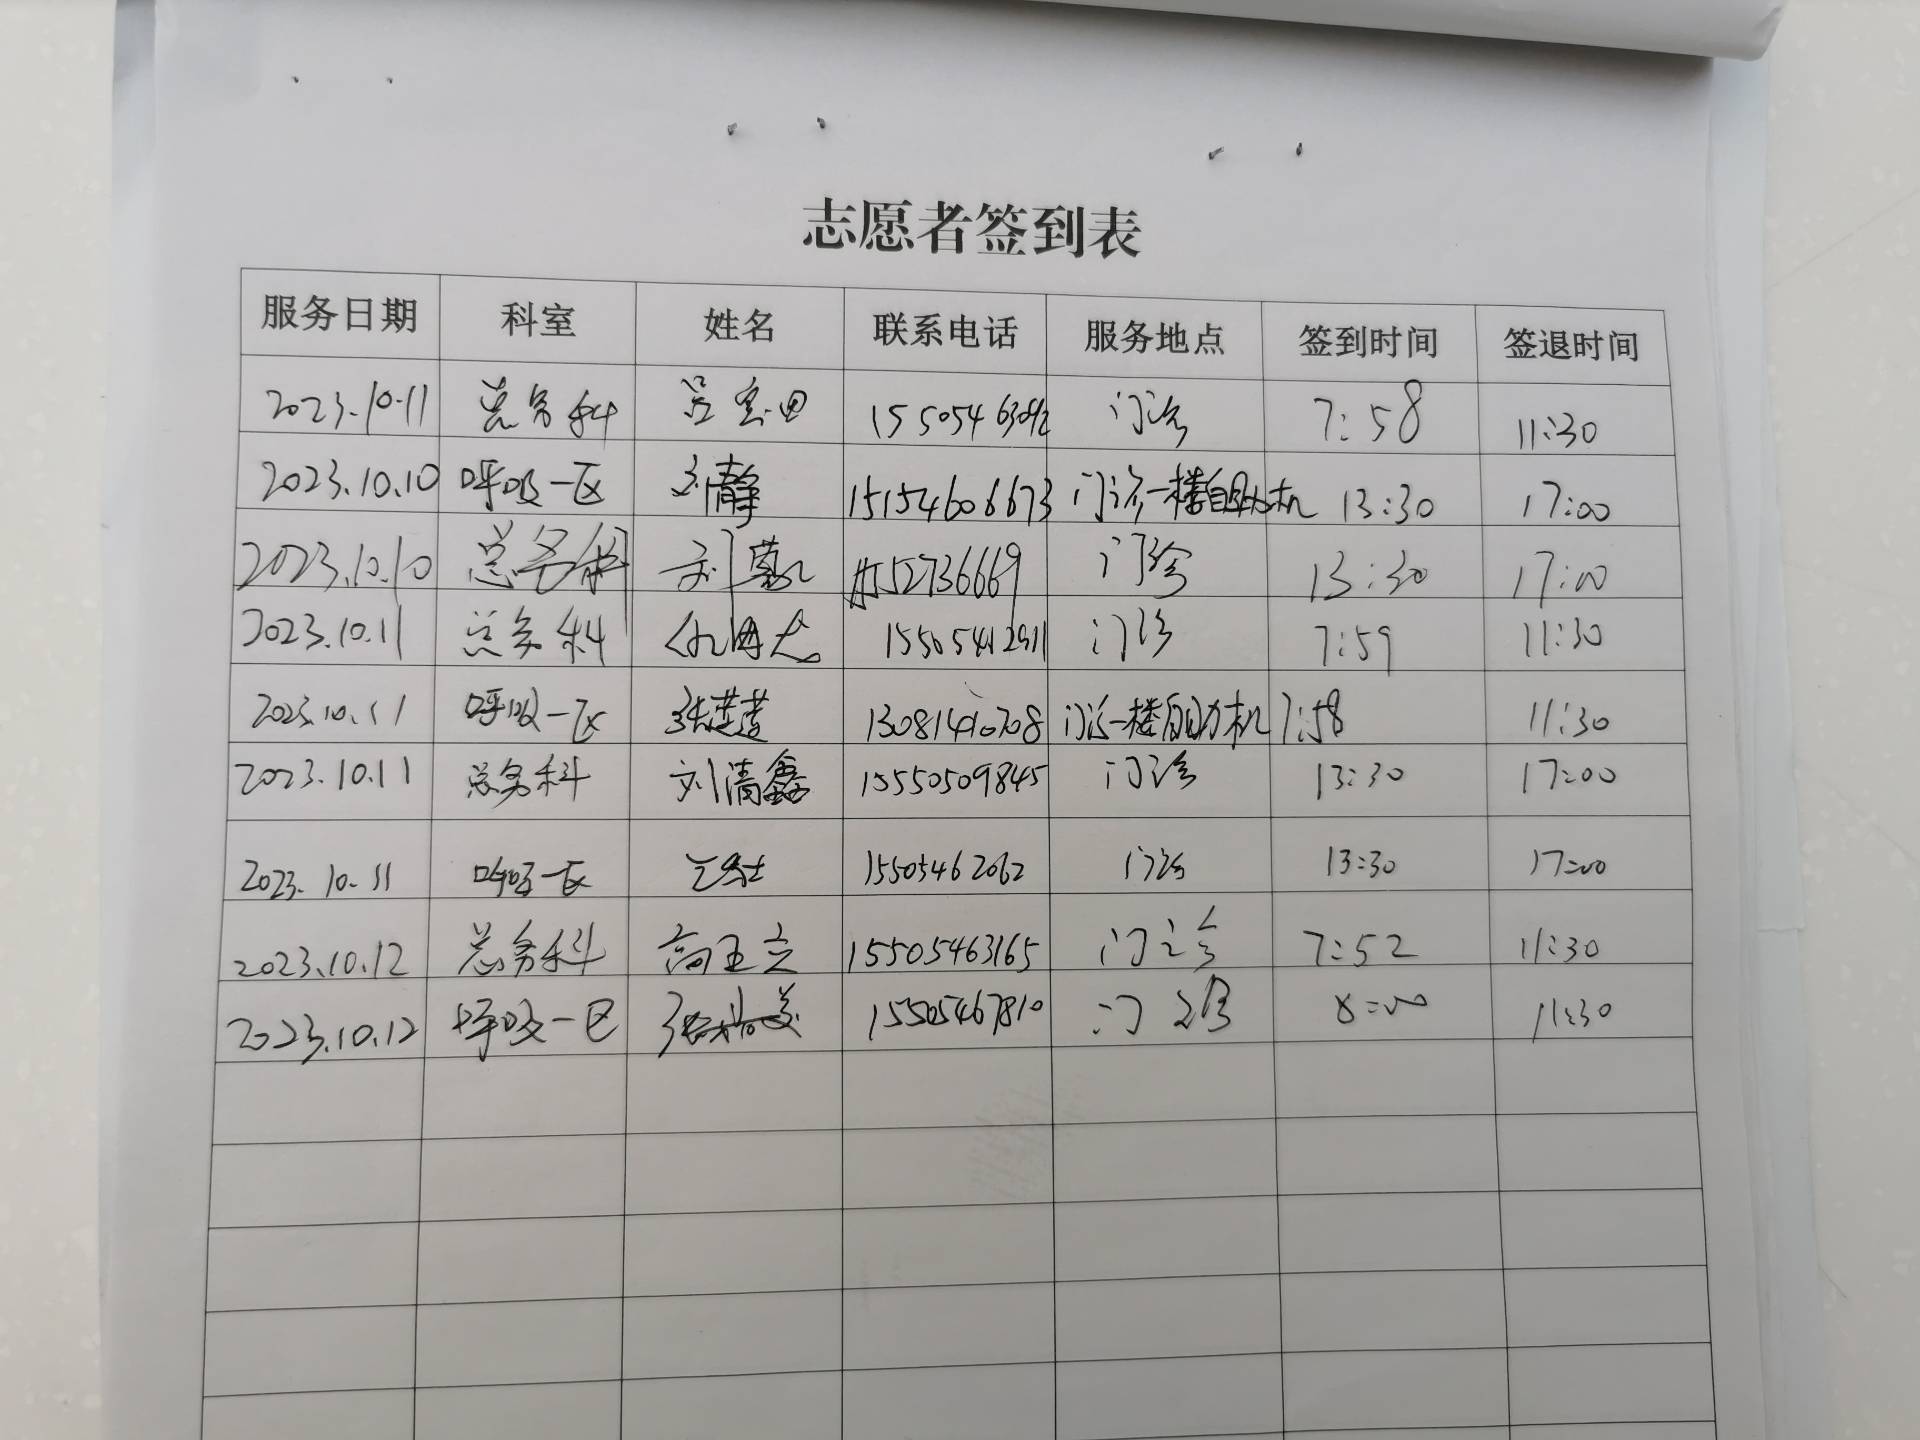 志愿者签到表
服务日期 科室 姓名 联系电话 服务地点 签到时间 签退时间
2023.10.11 总务科 门诊 7:58 11:30
2023.10.10 呼吸一区 刘静 15154606673 门诊一楼自助机 13:30 17:00
2023.10.10 总务科 门诊 13:30 17:00
2023.10.11 总务科 15505412911 门诊 7:59 11:30
2023.10.11 呼吸一区 13081410708 门诊一楼自助机 7:58 11:30
2023.10.11 总务科 刘清鑫 15550509845 门诊 13:30 17:00
2023.10.11 呼吸一区 15505462062 门诊 13:30 17:00
2023.10.12 总务科 高玉立 15505463165 门诊 7:52 11:30
2023.10.12 呼吸一区 15505467810 门诊 8:00 11:30